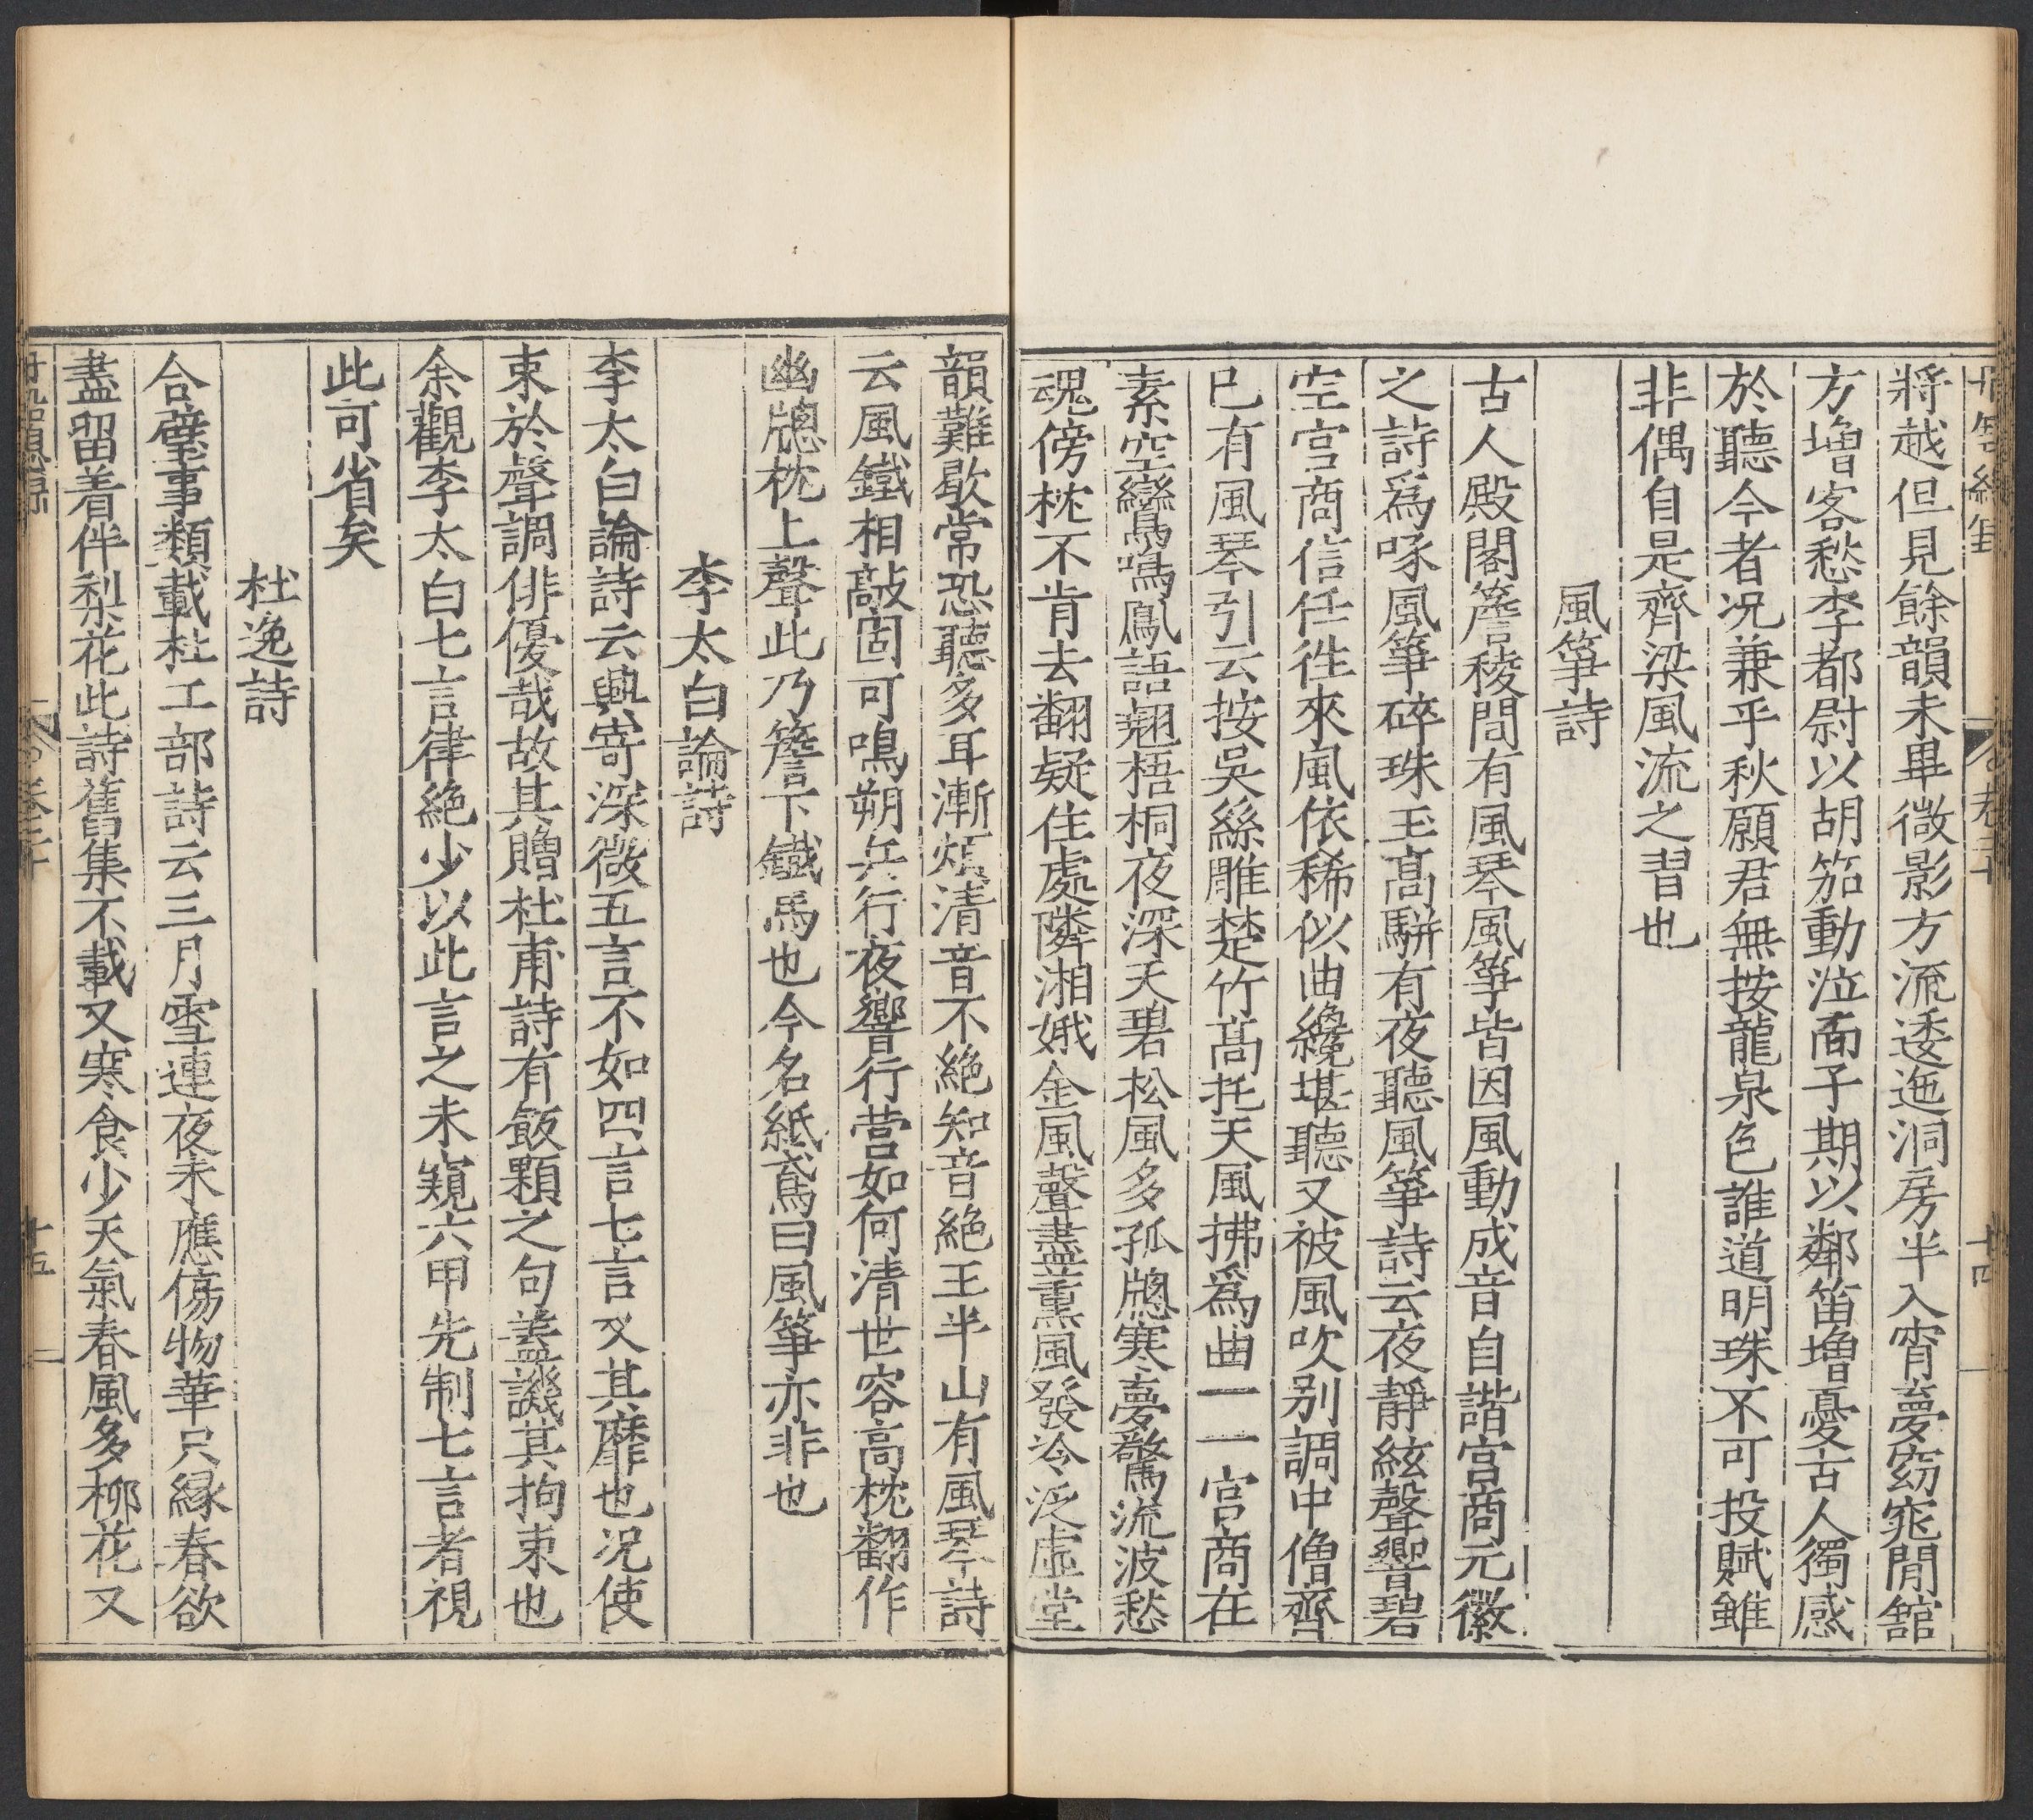 將越但見餘韻未畢微影方流逶迤洞房半入宵夢窈窕閒舘
方増客愁李都尉以胡笳動泣向子期以鄰笛増憂古人獨感
於聽今者况兼乎秋願君無按龍泉色誰道明珠不可投賦雖
非偶自是齊梁風流之習也
風箏詩
古人殿閣簷稜間有風琴風箏皆因風動成音自諧宫商元徽
之詩爲啄風箏碎珠玉髙駢有夜聽風箏詩云夜靜絃聲響碧
空宫商信任徃來風依稀似曲纔堪聽又被風吹别調中僧齊
已有風琴引云按吳絲雕楚竹髙托天風拂爲曲一一宫商在
素空鸞鳴鳳語翹梧桐夜深天碧松風多孤牕寒夢驚流波愁
魂傍枕不肯去翻疑住處隣湘娥金風聲盡薰風發冷泛虛堂
韻難歇常恐聽多耳漸煩清音不絶知音絶王半山有風琴詩
云風鐵相敲固可鳴朔兵行夜響行營如何清世容高枕翻作
幽牕枕上聲此乃簷下鐵馬也今名紙鳶曰風箏亦非也
李太白論詩
李太白論詩云興寄深微五言不如四言七言又其靡也况使
束於聲調俳優哉故其贈杜甫詩有飯顆之句盖譏其拘束也
余觀李太白七言律絶少以此言之未窺六甲先制七言者視
此可省矣
杜逸詩
合璧事類載杜工部詩云三月雪連夜未應傷物華只縁春欲
盡留着伴梨花此詩舊集不載又寒食少天氣春風多柳花又
十五